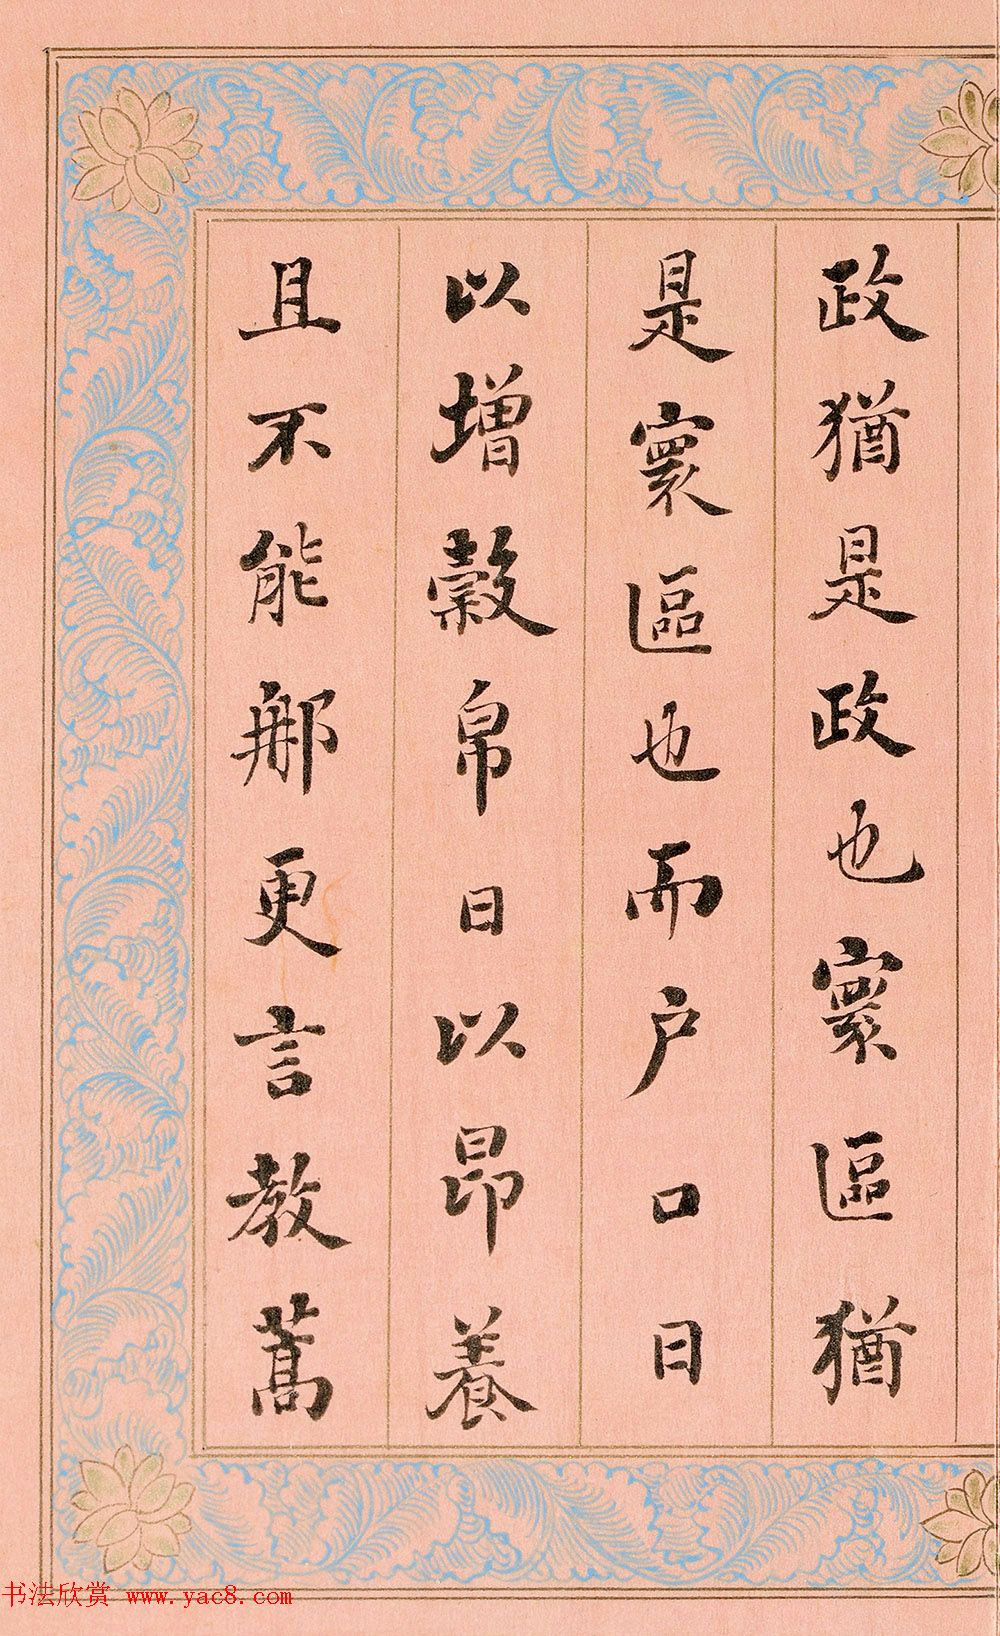 政猶是政也寰區猶
是寰區也而户口日
以增穀帛日以昂養
且不能那更言教蒿
书法欣赏 www.yac8.com